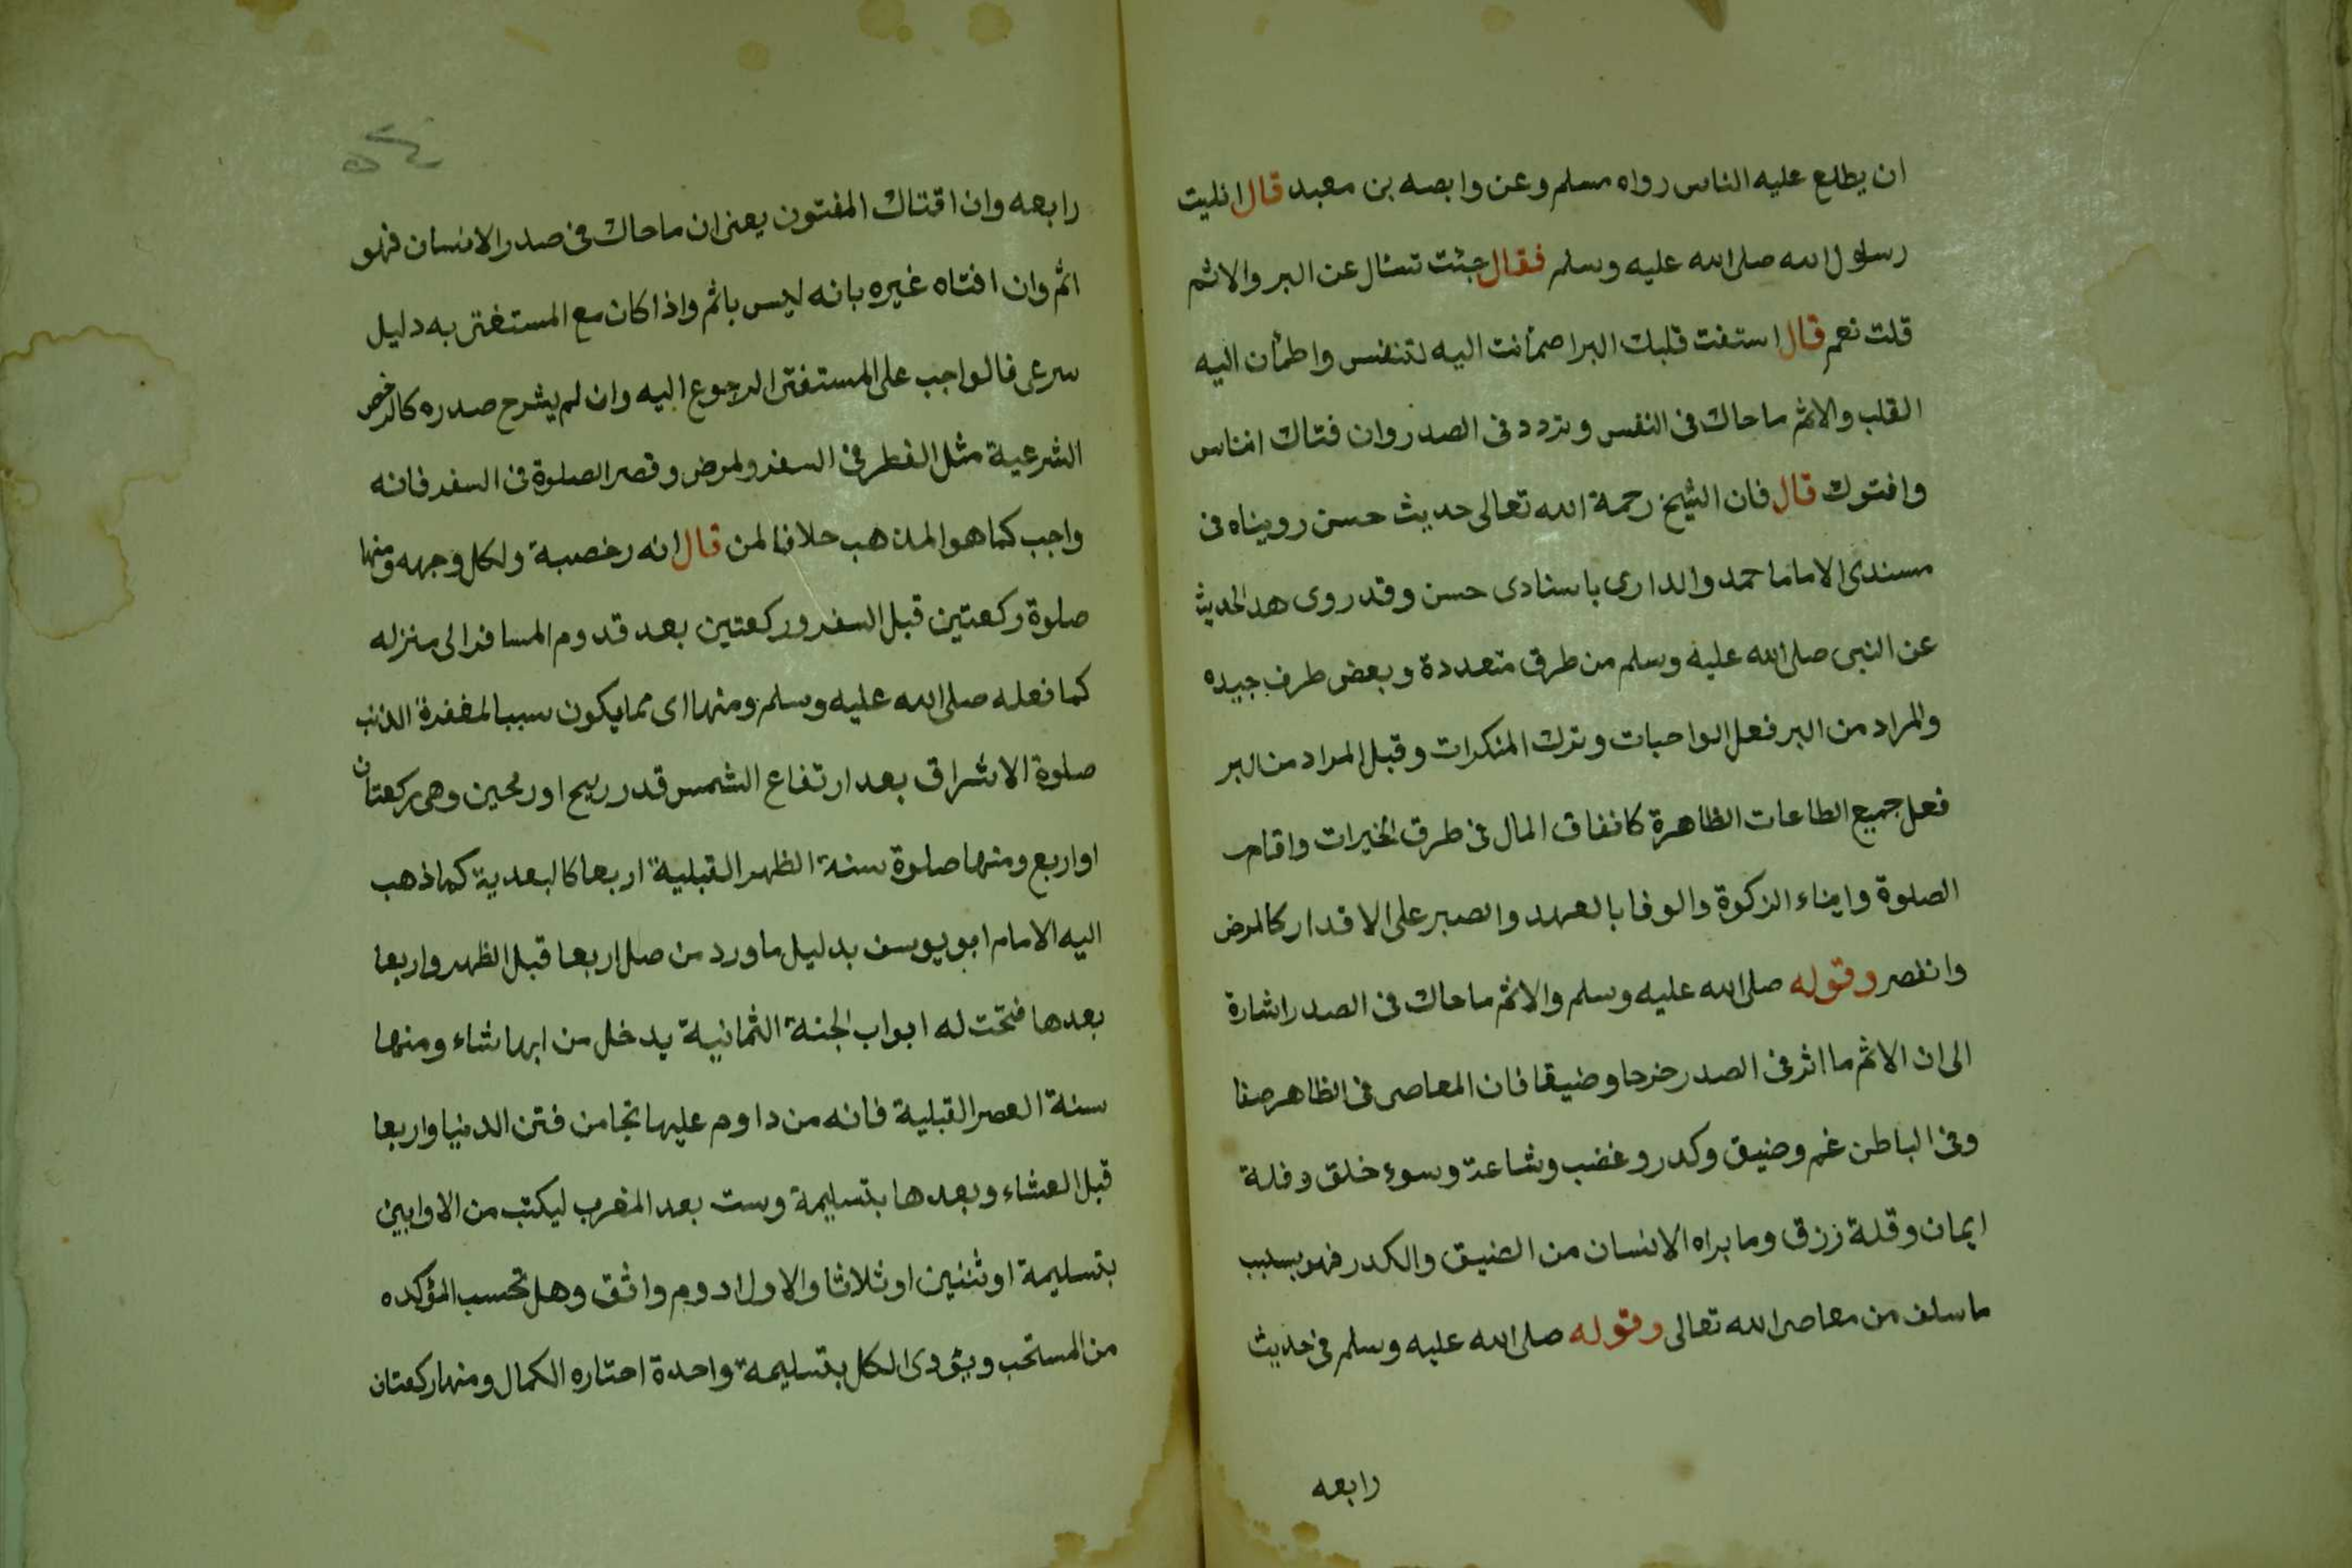 ان يطلع عليه الناس رواه مسلم وعن وابصه بن معبد قال اتليت
رسول الله صلى الله عليه وسلم فقال جئت تسئال عن البر والاثم
قلت نعم قال استفت قلبك البر اطمأنت اليه لتنفس واطمأن اليه
القلب والاثم ماحاك فى النفس وتردد فى الصدر وان فتاك الناس
وافتوك قال فان الشيخ رحمة الله تعالى حديث حسن رويناه فى
مسندى الامام احمد والدارى باسنادى حسن وقد روى هد الحديث
عن النبى صلى الله عليه وسلم من طرق متعددة وبعض طرف جيده
والمراد من البر فعل الواحبات وترك المنكرات وقبل المراد من البر
فعل جميع الطاعات الظاهرة كانفاق المال فى طرق الخيرات واقام
الصلوة وايتاء الزكوة والوفا بالعهد والصبر على الاقدار كالمرض
وانفصر وقوله صلى الله عليه وسلم والاثم ماحاك فى الصدر اشارة
الى ان الاثم ما اثر فى الصدر خرجا وضيقا فان المعاصى فى الظاهر
وفى الباطن غم وضيق وكدر وغضب وشاعة وسوء خلق وقلة
ايمان وقلة زرق وما براه الانسان من الضيق والكدر فهو بسبب
ماسلف من معاصى الله تعالى وقوله صلى الله عليه وسلم فى حديث
رابعه
رابعه وان اقتاك المفتون يعنى ان ماحاك فى صدر الانسان فهو
اثم وان افتاه غيره بانه ليس باثم واذا كان مع المستفتى به دليل
سرعى فالواجب على المستفتى الرجوع اليه وان لم يشرح صدره كالرخص
الشرعية مثل الفطر فى السفر ولمرض وقصر الصلوة فى السفر فانه
واجب كما هو المذهب حلافا لمن قال انه رخصبة ولكل وجهه ومنها
صلوة ركعتين قبل السفر وركعتين بعد قدوم المسافر الى منزله
كما فعله صلى الله عليه وسلم ومنها اى مما يكون سببا لمغفرة الذنب
صلوة الاشراق بعد ارتفاع الشمس قدر ريح او رمحين وهى ركعتان
او اربع ومنها صلوة سنة الظهر القبلية اربعا كالبعدية كما ذهب
اليه الامام ابو يوسف بدليل ماورد من صلى اربعا قبل الظهر واربعا
بعدها فتحت له ابواب الجنة الثمانية يدخل من ايها شاء ومنها
سنة العصر القبلية فانه من داوم عليها نجا من فتن الدنيا واربعا
قبل العشاء وبعدها بتسليمة وست بعد المغرب ليكتب من الاوابين
بتسليمة او ثنين او ثلاثا والاول ادوم واثق وهل تحسب المؤكده
من المستحب ويؤدى الكل بتسليمة واحدة احتاره الكمال ومنها ركعتان